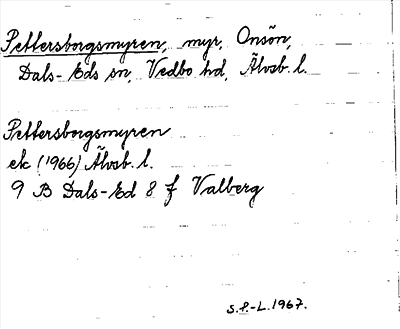 Pettersborgsmyren, myr, Onsön,
Dals-Eds sn, Vedbo hd, Älvsb. l.
Pettersborgsmyren
ek (1966) Älvsb. l.
9 B Dals-Ed 8 f Valberg
S.F.-L. 1967.